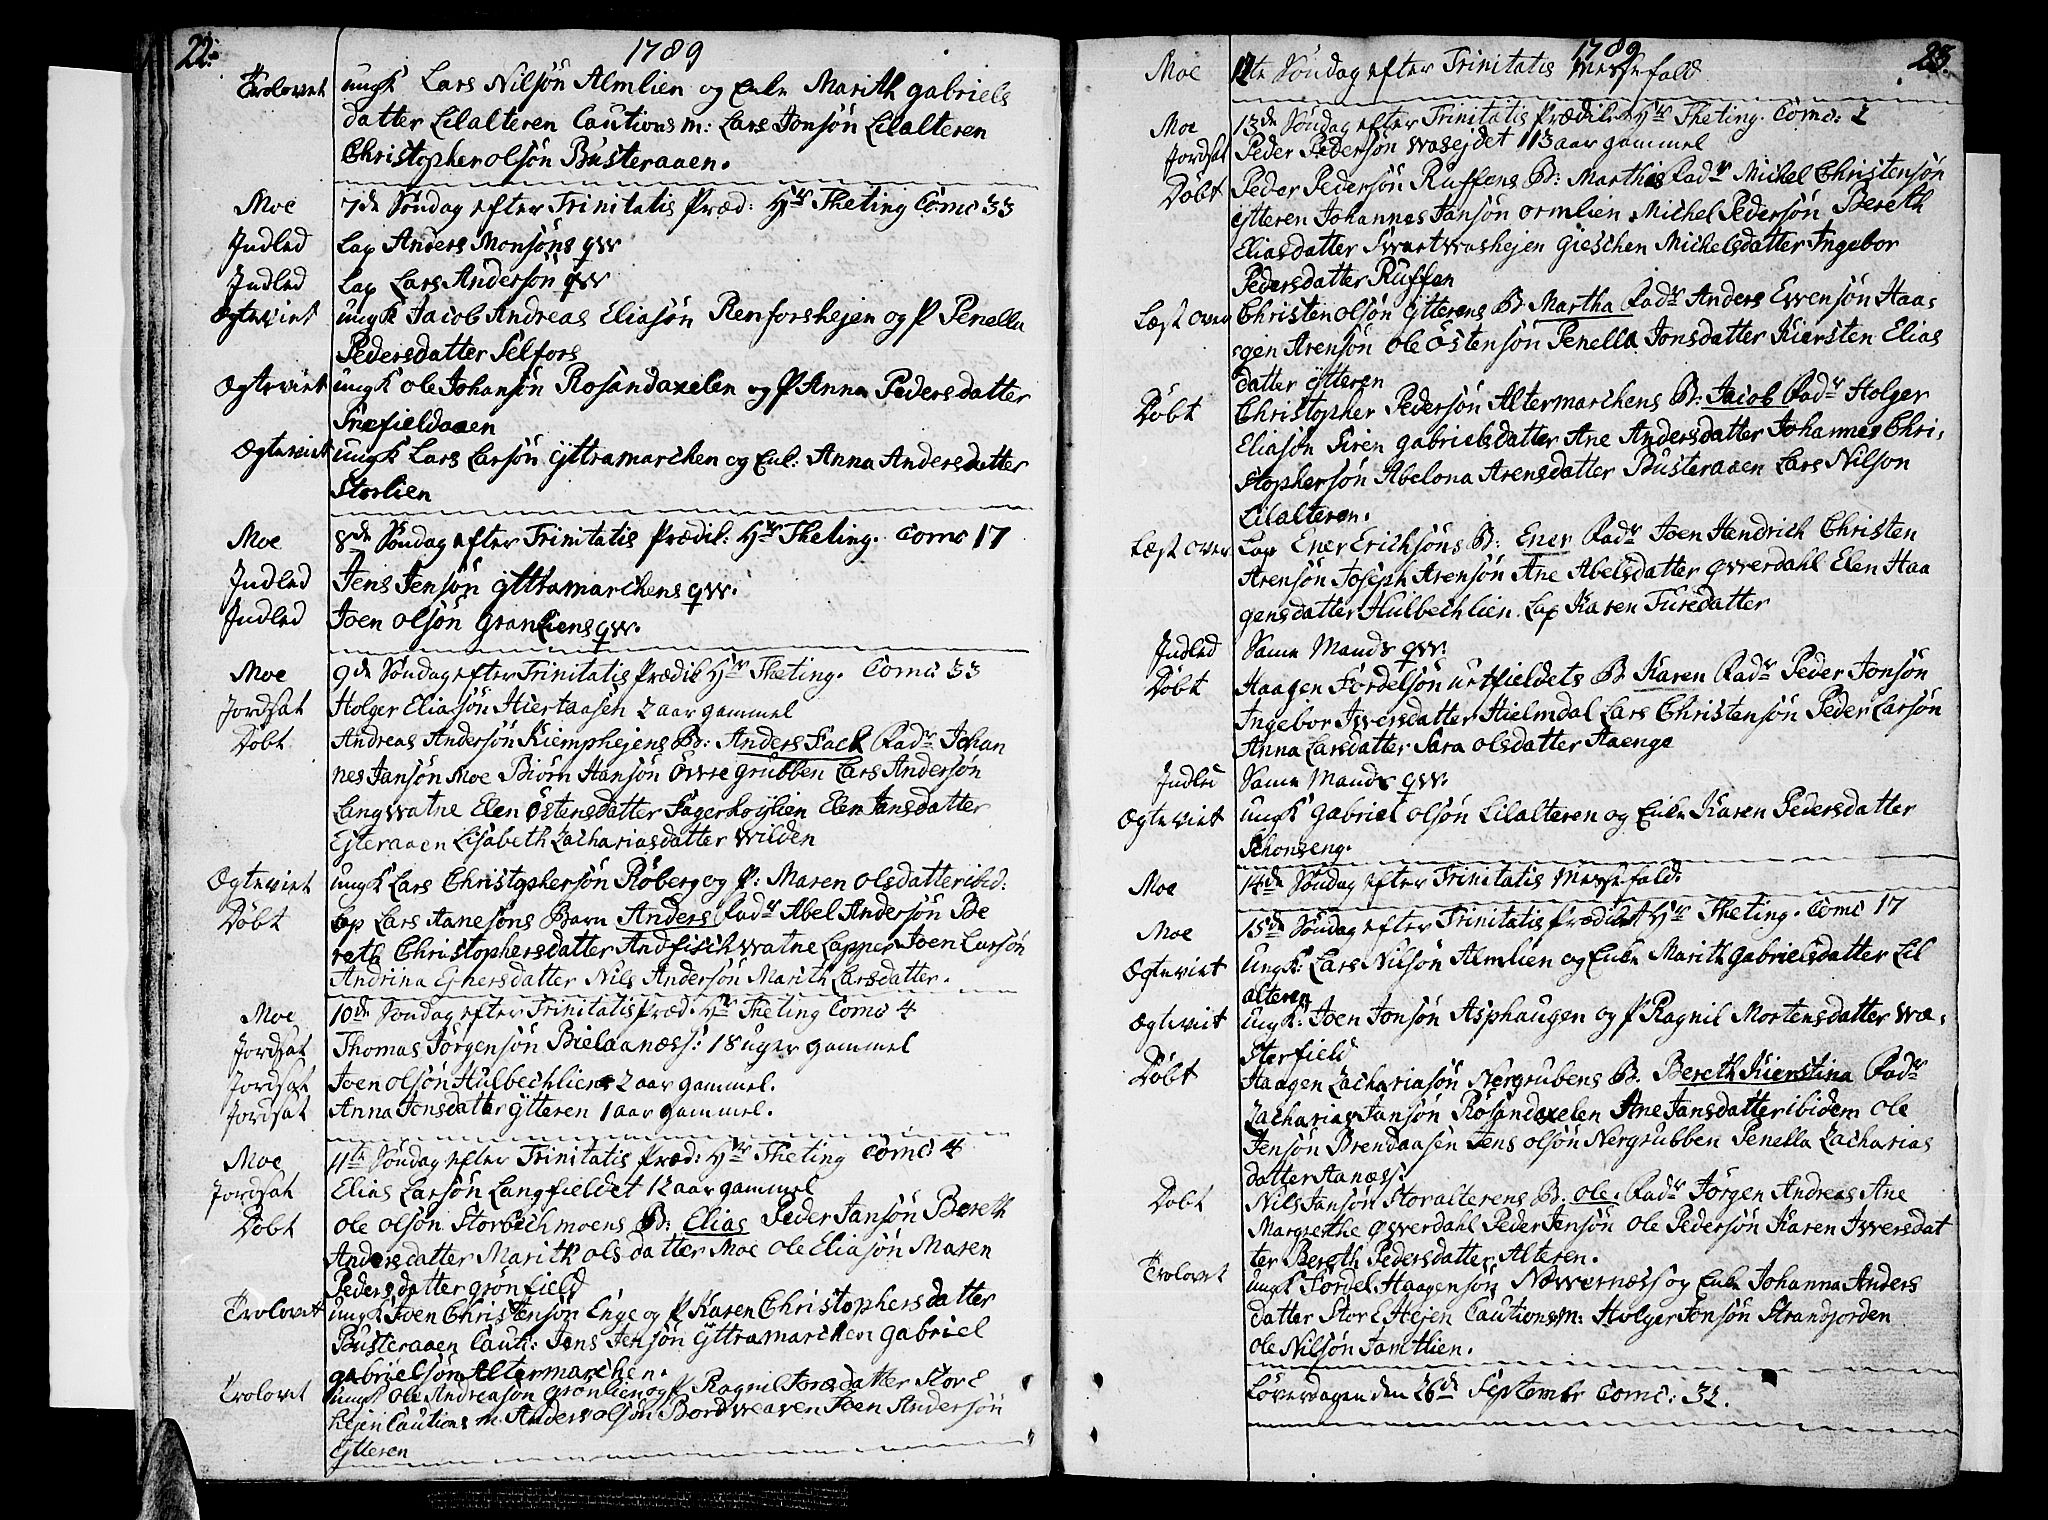 22. 1789
Trolovet ungk Lars Nilsön Almlien og Enke Marith gabriels
datter Lilalteren Cautions m: Lars Jonsön Lilalteren
Christopher olsön Busteraaen.
Moe 7de Söndag efter Trinitatis Præd: Hr Theting Comc 33
Indled Lap Anders Monsöns qv
Indled Lap Lars Andersön qv
Ægteviet ungk Jacob Andreas Eliasön Renforshejen og P Penella
Pedersdatter Selfors
Ægteviet ungk ole Johansön Rosandaxelen og P Anna Pedersdatter
Snefieldaaen
Ægteviet ungk Lars Larsön Yttramarchen og Enk: Anna Andersdatter
Storlien
Moe 8de Söndag efter Trinitatis Prædik: Hr Theting. Comc 17
Indled Jens Jensön yttramarchens qv.
Indled Joen olsön Granliens qv.
Moe 9de Söndag efter Trinitatis Prædik Hr Theting. Comc 33
Jordsat Holger Eliasön Hiertaasen 2 aar gammel
Döbt Andreas Andersön Kiemphejens B: Anders Fack Fadr Johan
nes Jansön Moe Biörn Hansön övre grubben Lars Andersön
Langvatne Elen Östensdatter Fagerhoÿlien Elen Jansdatter
Ejteraaen Lisabeth Zachariasdatter Wilden
Ægteviet ungk Lars Christophersön Röberg og P: Maren olsdatter ibid:
Döbt Lap Lars Aanesöns Barn Anders Fadr Abel Andersön Be
reth Christophersdatter Andfiskvatne Lapper Joen Larsön
Andrina Ejnersdatter Nils Andersön Marith Larsdatter.
Moe 10de Söndag efter Trinitatis Præd. Hr Theting Comc 4
Jordsat Thomas Jörgensön Bielaanæss: 18 uger gammel
Jordsat Joen olsön Hulbechlien 2 aar gammel.
Jordsat Anna Jonsdatter ÿtteren 1 aar gammel.
Moe 11te Söndag efter Trinitatis Præd: Hr Theting Comc 4
Jordsat Elias Larsön Langfieldet 12 aar gammel
Döbt ole olsön Storbechmoens B: Elias Peder Jansön Bereth
Andersdatter Marith olsdatter Moe ole Eliasön Maren
Pedersdatter grönfield
Trolovet ungk Joen Christensön Enge og P Karen Christophersdatter
Busteraaen Caut: Jens Jensön ÿttramarchen gabriel
gabrielsön Altermarchen.
Trolovet ungk ole Andreasön grönlien og P Ragnil Jonsdatter Stor E
hejen Cautions m. Anders olsön Bordveaven Joen Andersön
ÿtteren
1789 23.
Moe 12te Söndag efter Trinitatis Messefald
Moe 13de Söndag efter Trinitatis Prædik Hr Theting. Comc: 2
Jordsat Peder Pedersön Vasejdet 113 aar gammel
Döbt Peder Pedersön Ruffens B: Marthis Fadr Michel Christensön
ÿtteren Johannes Jansön ormlien Michel Pedersön Bereth
Eliasdatter Svartvashejen giesken Michelsdatter Ingebor
Pedersdatter Ruffen
Læst over Christen olsön ÿtterens B Martha Fadr Anders Evensön Haa
gen Arensön ole Östensön Penella Jonsdatter Kiersten Elias
datter ÿtteren
Döbt Christopher Pedersön Altermarchens B: Jacob Fadr Holger
Eliasön Siren gabrielsdatter Ane Andersdatter Johannes Chri,
stophersön Abelona Arensdatter Busteraaen Lars Nilson
Lilalteren.
Læst over Lap Ener Erichsöns B: Ener Fadr Joen Hendrich Christen
Arensön Joseph Arensön Ane Abelsdatter Øverdahl Elen Haa
gensdatter Hulbechlien. Lap Karen Turedatter
Indled Same Mands qv.
Döbt Haagen Fordelsön Urtfieldets B Karen Fadr Peder Jonsön
Ingebor Iversdatter Hielmdal Lars Christensön Peder Larsön
Anna Larsdatter Sara olsdatter Aaenge
Indled Same Mands qv.
Ægteviet ungk gabriel olsön Lilalteren og Enke Karen Pedersdatter
Skonseng.
Moe 14de Söndag efter Trinitatis Messefald.
Moe 15de Söndag efter Trinitatis Prædiket Hr Theting. Comc 17
Ægteviet Ungk: Lars Nilsön Almlien og Enke Marith gabrielsdatter Lil
alteren
Ægteviet Ungk: Joen Jonsön Asphaugen og P Ragnil Mortensdatter Væ,
sterfield
Döbt Haagen Zachariasön Nergrubens B. Bereth Kierstina Fadr
Zacharias Jansön Rösandaxelen Ane Jansdatter ibidem ole
Jensön Brendaasen Jens olsön Nergrubben Penella Zacharias
datter Aanæss:
Döbt Nils Jansön Storalterens B. ole. Fadr Jörgen Andreas Ane
Margrethe Øverdahl Peder Jensön ole Pedersön Karen Iversdat
ter Bereth Pedersdatter Alteren.
Trolovet ungk Fordel Haagensön Neverness og Enke Johanna Anders
datter Stor E Hejen Cautionsm: Holger Jonsön Strandjorden
ole Nilsön Jamtlien.
Löverdagen den 26de Septembr Comc: 32.